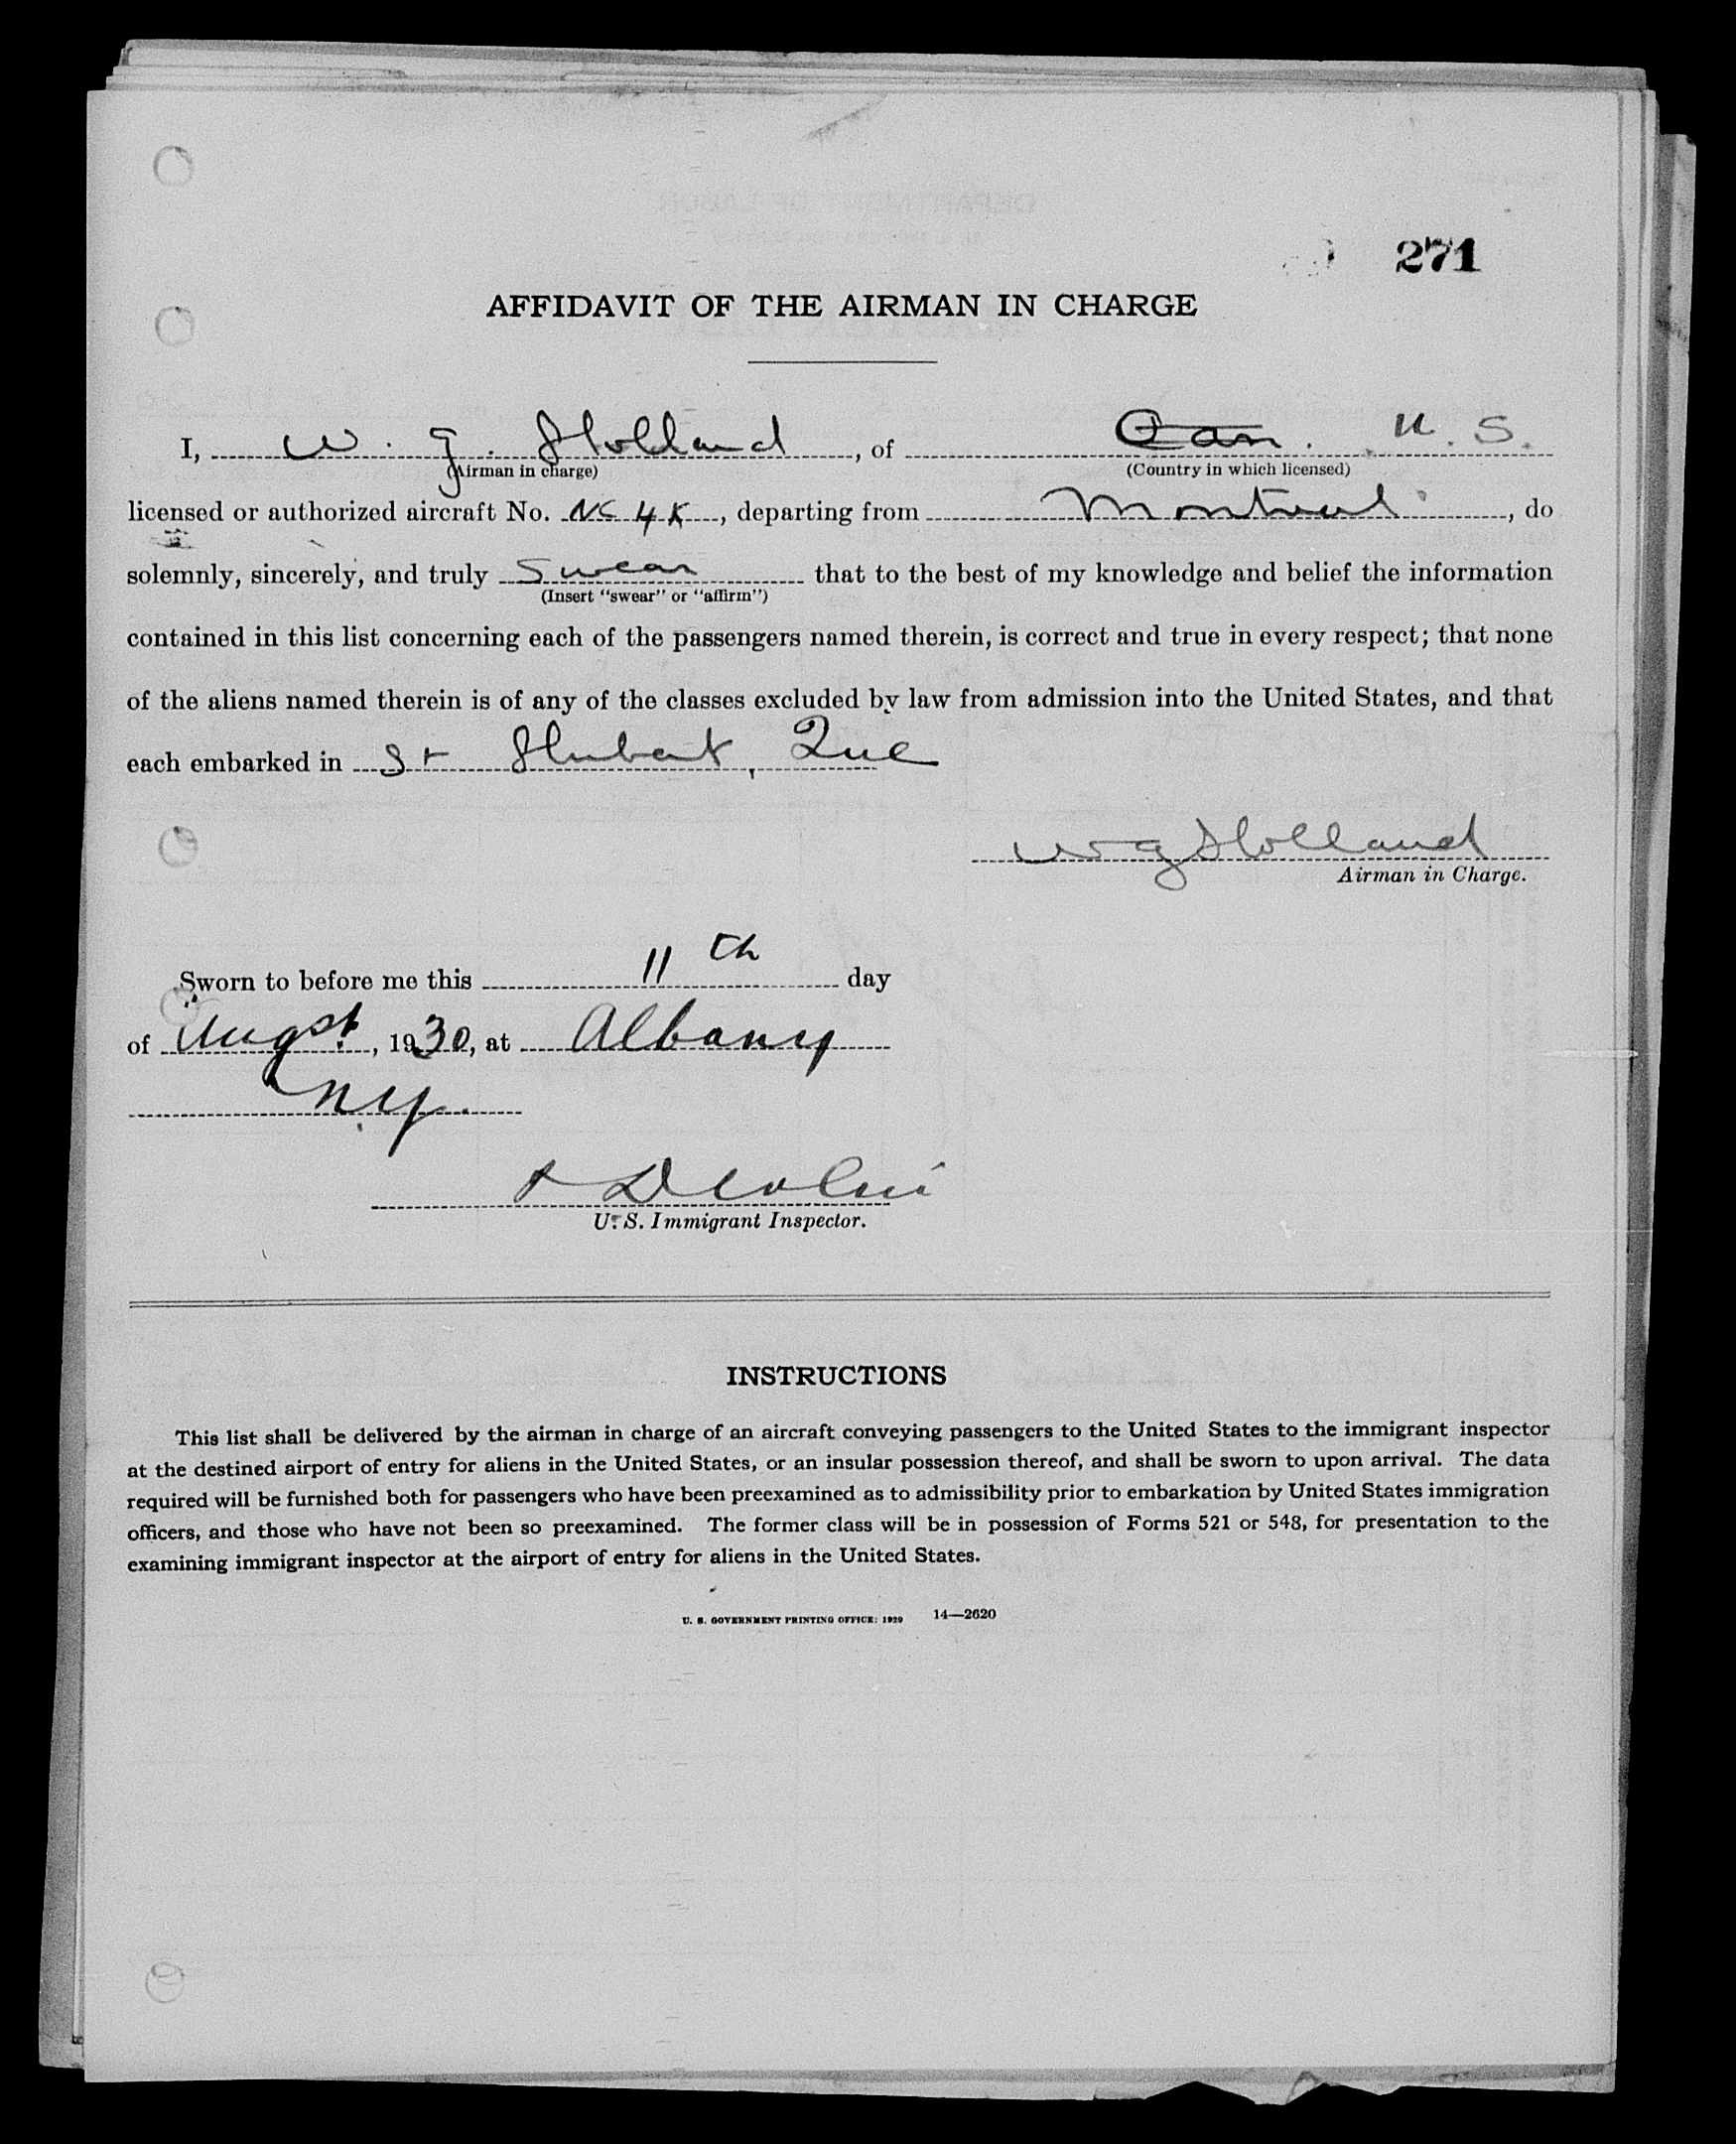 271
AFFIDAVIT OF THE AIRMAN IN CHARGE
I, W. G. Holland, of Can. U. S.
(Airman in charge) (Country in which licensed)
licensed or authorized aircraft No. NC 4K, departing from Montreal, do
solemnly, sincerely, and truly Swear that to the best of my knowledge and belief the information
(Insert "swear" or "affirm")
contained in this list concerning each of the passengers named therein, is correct and true in every respect; that none
of the aliens named therein is of any of the classes excluded by law from admission into the United States, and that
each embarked in St Hubert, Que
W G Holland
Airman in Charge.
Sworn to before me this 11th day
of Augst, 1930, at Albany
NY.
U. S. Immigrant Inspector.
INSTRUCTIONS
This list shall be delivered by the airman in charge of an aircraft conveying passengers to the United States to the immigrant inspector
at the destined airport of entry for aliens in the United States, or an insular possession thereof, and shall be sworn to upon arrival. The data
required will be furnished both for passengers who have been preexamined as to admissibility prior to embarkation by United States immigration
officers, and those who have not been so preexamined. The former class will be in possession of Forms 521 or 548, for presentation to the
examining immigrant inspector at the airport of entry for aliens in the United States.
U. S. GOVERNMENT PRINTING OFFICE: 1929 14—2620